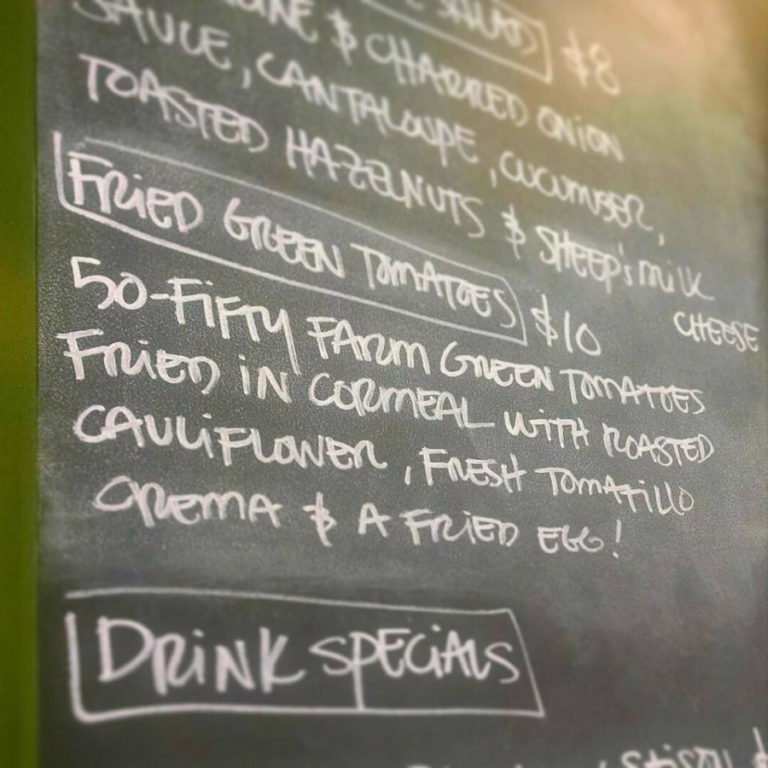 SALAD $8
& CHARRED ONION
SAUCE, CANTALOUPE, CUCUMBER,
TOASTED HAZELNUTS & SHEEP'S MILK
CHEESE
FRIED GREEN TOMATOES $10
50-FIFTY FARM GREEN TOMATOES
FRIED IN CORMEAL WITH ROASTED
CAULIFLOWER, FRESH TOMATILLO
CREMA & A FRIED EGG!
DRINK SPECIALS